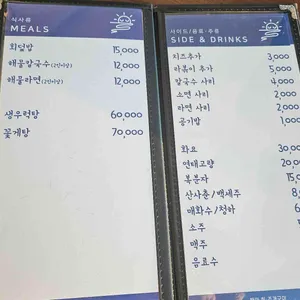 식사류
MEALS
회덮밥 15,000
해물칼국수(2인이상) 12,000
해물라면(2인이상) 12,000
생우럭탕 60,000
꽃게탕 70,000
사이드/음료·주류
SIDE & DRINKS
치즈추가 3,000
라볶이 추가 5,000
칼국수 사리 4,000
소면 사리 2,000
라면 사리 2,000
공기밥 1,000
화요 30,00
연태고량 20,0
복분자 15,
산사춘/백세주 8,
매화수/청하 6
소주
맥주
음료수